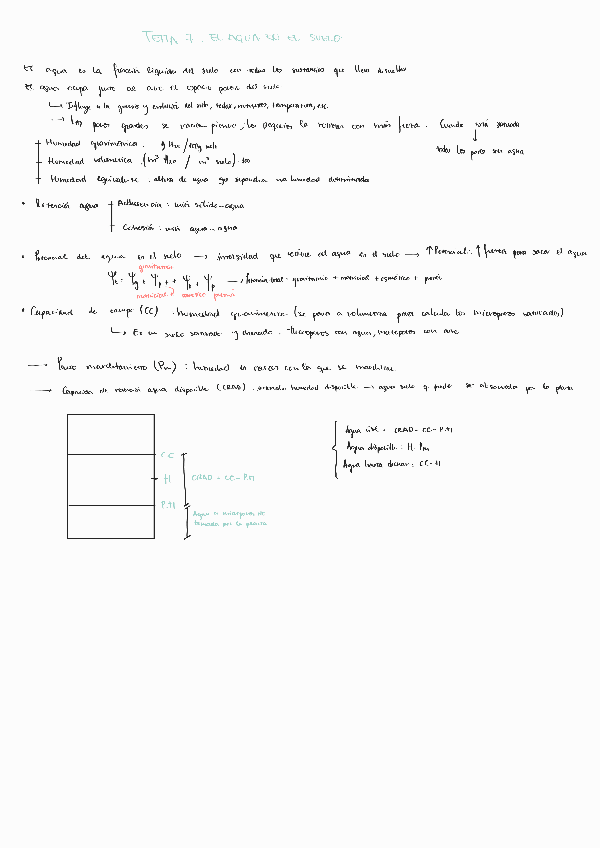 TEMA 7. EL AGUA EN EL SUELO.
El agua es la fracción líquida del suelo con todas las sustancias que lleva disueltas
El agua ocupa junto al aire el espacio poroso del suelo
↳ Influye en la génesis y evolución del suelo, redox, nutrientes, temperatura, etc.
→ Los poros grandes se vacían primero, los pequeños la retienen con más fuerza. Cuando está saturado
↓
todos los poros son agua
Humedad gravimétrica. g H₂O / 100g suelo
Humedad volumétrica. (m³ H₂O / m³ suelo) · 100
Humedad equivalente. altura de agua que supondría una humedad determinada
• Retención agua
Adherencia: unión sólido-agua
Cohesión: unión agua-agua
• Potencial del agua en el suelo → intensidad que retiene el agua en el suelo → ↑Potencial: ↑ fuerza para sacar el agua
gravitatorio
Ψt = Ψg + Ψp + + Ψp + Ψp → Potencial total: gravitatorio + matricial + osmótico + presión
matricial osmótico presión
• Capacidad de campo (CC). Humedad gravimétrica (se pasa a volumétrica para calcular los microporos saturados)
↳ Es un suelo saturado y drenado. Microporos con agua, macroporos con aire
→ Punto marchitamiento (Pm): humedad en raíces con la que se marchita
→ Capacidad de retención agua disponible (CRAD). humedad disponible → agua suelo q. puede ser absorbida por la planta
CC
H
CRAD = CC - P.M
P.M
Agua en microporos no
tomada por la planta
Agua útil = CRAD = CC - P.M
Agua disponible: H - Pm
Agua hasta drenar: CC - H